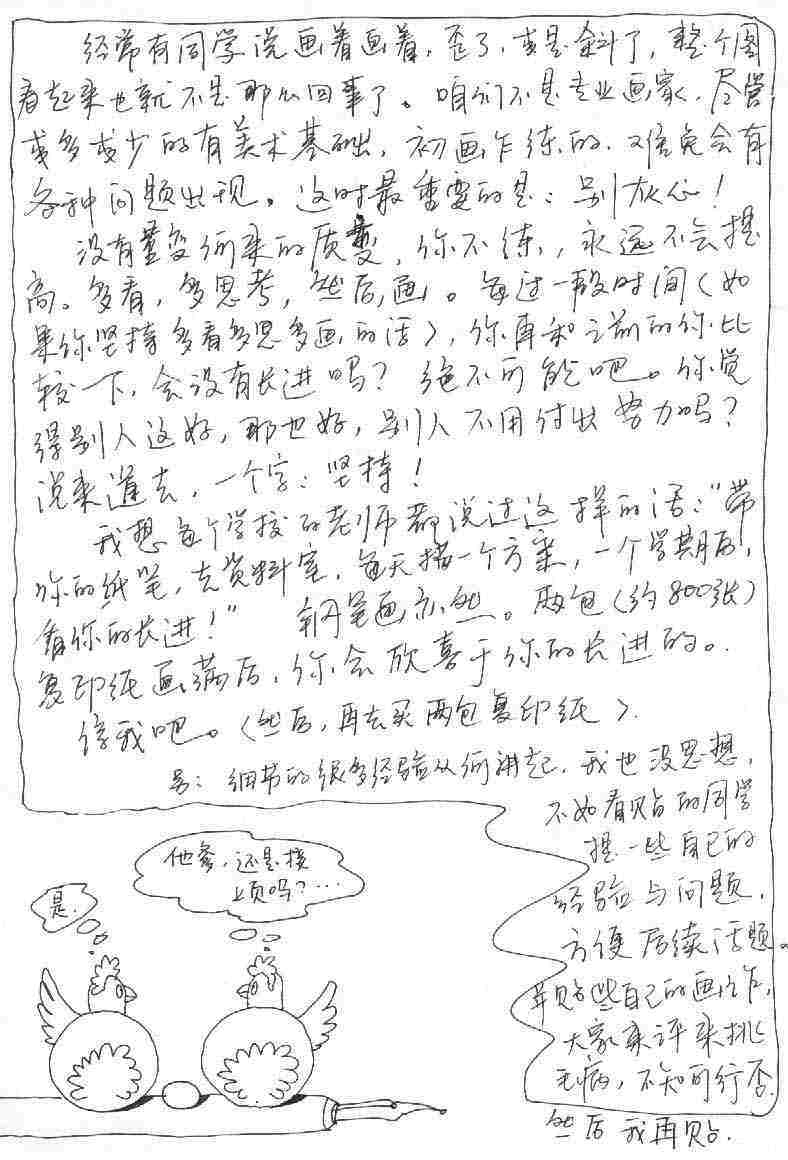 经常有同学说画着画着，歪了，或是斜了，整个图
看起来也就不是那么回事了。咱们不是专业画家，尽管
或多或少的有美术基础，初画乍练的，难免会有
各种问题出现。这时最重要的是：别灰心！
没有量变何来的质变，你不练，永远不会提
高。多看，多思考，然后，画。每过一段时间（如
果你坚持多看多思多画的话），你再和之前的你比
较一下，会没有长进吗？绝不可能吧。你觉
得别人这好，那也好，别人不用付出努力吗？
说来道去，一个字：坚持！
我想每个学校的老师都说过这样的话："带
你的纸笔，去资料室，每天描一个方案，一个学期后，
看你的长进！" 钢笔画亦然。两包（约800张）
复印纸画满后，你会欣喜于你的长进的。
信我吧。（然后，再去买两包复印纸）.
另：细节的很多经验从何讲起，我也没思想，
不如看贴的同学
提一些自己的
经验与问题，
方便后续话题。
并贴些自己的画作，
大家来评来挑
毛病，不知可行否.
然后我再贴.
他爹，还是接
上页吗？…
是.